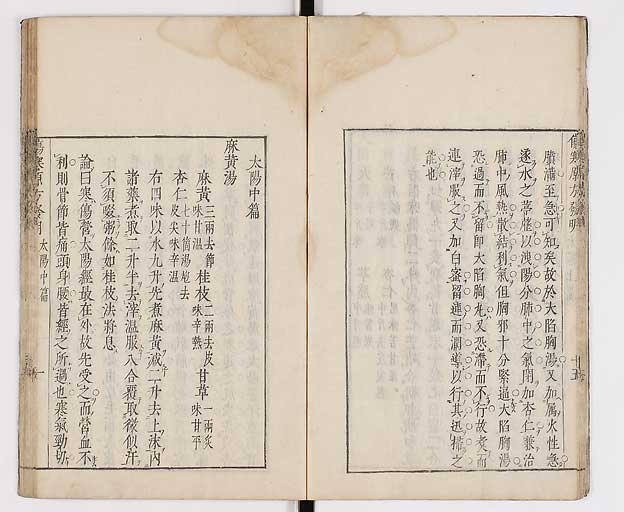 脹滿至急可知矣故於大陷胸湯又加屬火性急
逐水之葶藶以洩陽分肺中之氣閉加杏仁兼治
肺中風熱散結利氣但胸邪十分緊逼大陷胸湯
恐過而不留即大陷胸丸又恐滯而不行故煑而
連滓服之又加白蜜留連而潤導以行其迅掃之
能也
太陽中篇
麻黃湯
麻黃 三兩去節 味甘温 桂枝 二兩去皮 味辛熱 甘草 一兩炙 味甘平
杏仁 七十箇湯泡去 皮尖味辛温
右四味以水九升先煮麻黃減二升去上沫内
諸藥煮取二升半去滓温服八合覆取微似汗
不須啜粥餘如桂枝法將息
論曰寒傷營太陽經最在外故先受之而營血不
利則骨節皆痛頭身腰皆經之所過也寒氣勁切
太陽中篇